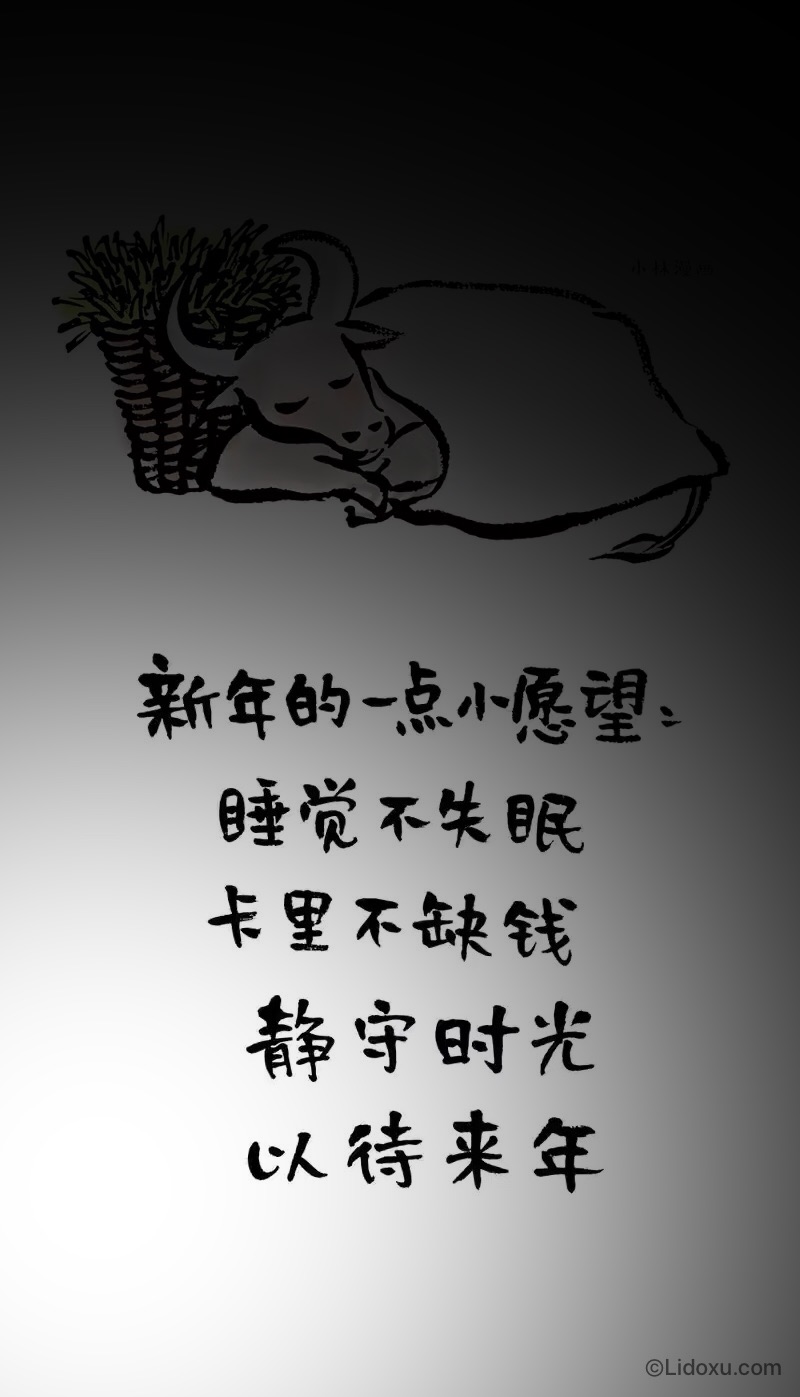 新年的一点小愿望:
睡觉不失眠
卡里不缺钱
静守时光
以待来年
©Lidoxu.com